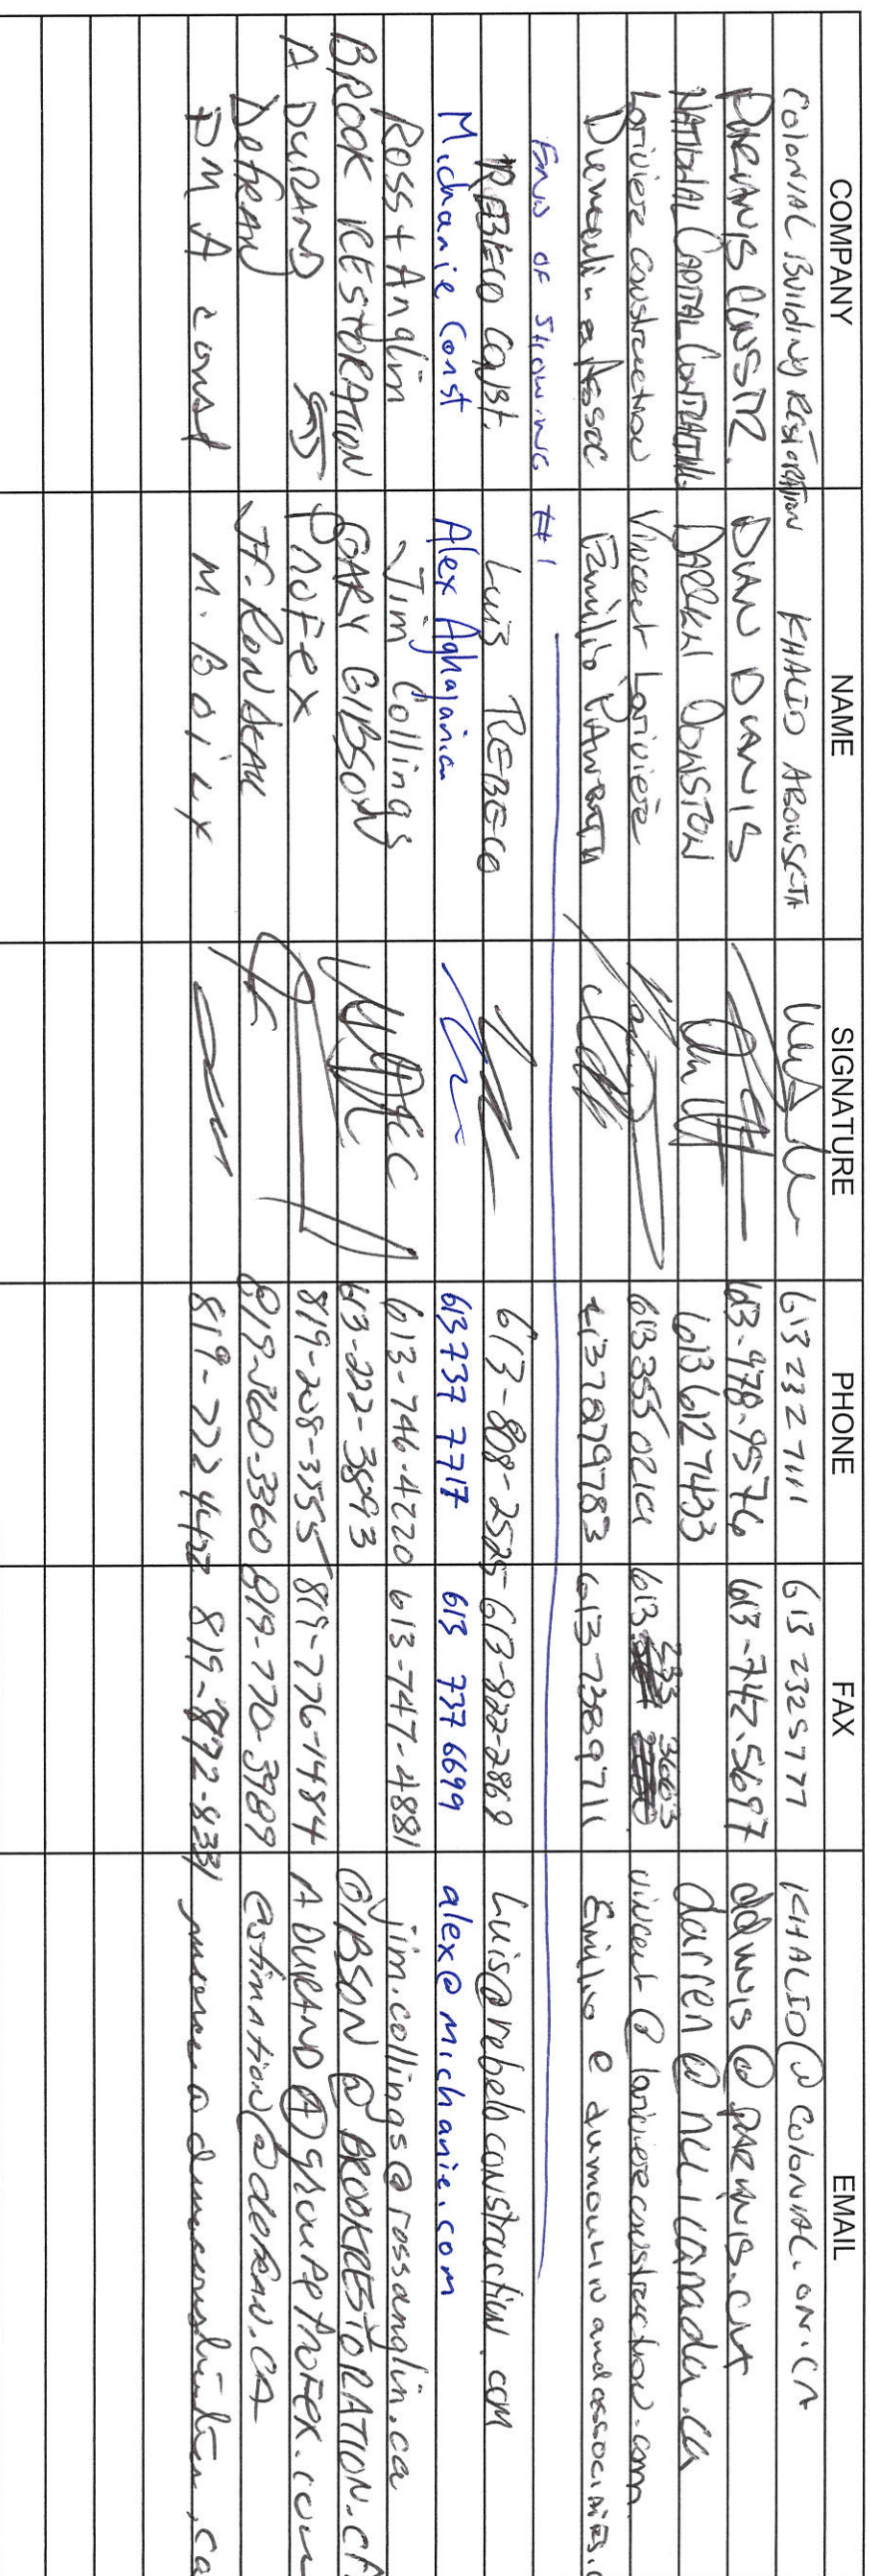 COMPANY NAME SIGNATURE PHONE FAX EMAIL
COLONIAL BUILDING RESTORATION KHALID 613 232 7111 613 2325777 KHALID@COLONIAL.ON.CA
CONSTR. 613-978-9576 613-742-5697
NATIONAL CAPITAL CONTRACTING DARREN 613 612 7433 darren@nccicanada.ca
Lariviere Construction Vincent Lariviere 613 233 3663 vincent@lariviereconstruction.com
Emilio 6137389711
END OF SHOWING #1
REBELO CONST. LUIS REBELO 613-808-2525 613-822-2869 Luis@rebeloconstruction.com
Michanie Const Alex Aghajanian 613 737 7717 613 737 6699 alex@michanie.com
Ross + Anglin Jim Collings 613-746-4220 613-747-4881 jim.collings@rossanglin.ca
BROOK RESTORATION GARY GIBSON 613-222-3893 GIBSON@BROOKRESTORATION.CA
A DURAND PROFEX 819-208-3555 819-776-1484 ADURAND@groupeprofex.com
Defran JF. RONDEAU 819-360-3360 819-770-3989 estimation@defran.ca
DMA const M. Boily 819-222 819-872-8331